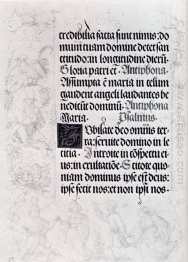 credibilia facta sunt nimis: do
mum tuam domine decet san
ctitudo: in longitudine dierũ.
Gloria patri et̃ Antiphona
Assumpta ẽ maria in celum
gaudent angeli laudantes be
nedicũt dominũ Antiphona
Maria. Psalmus.
Jubilate deo omnis ter
ra: seruite domino in le
ticia. Introite in cõspectu ei
us: in exultatiõe. Scitote quo
niam dominus ipse est deus:
ipse fecit nos: et non ipsi nos.